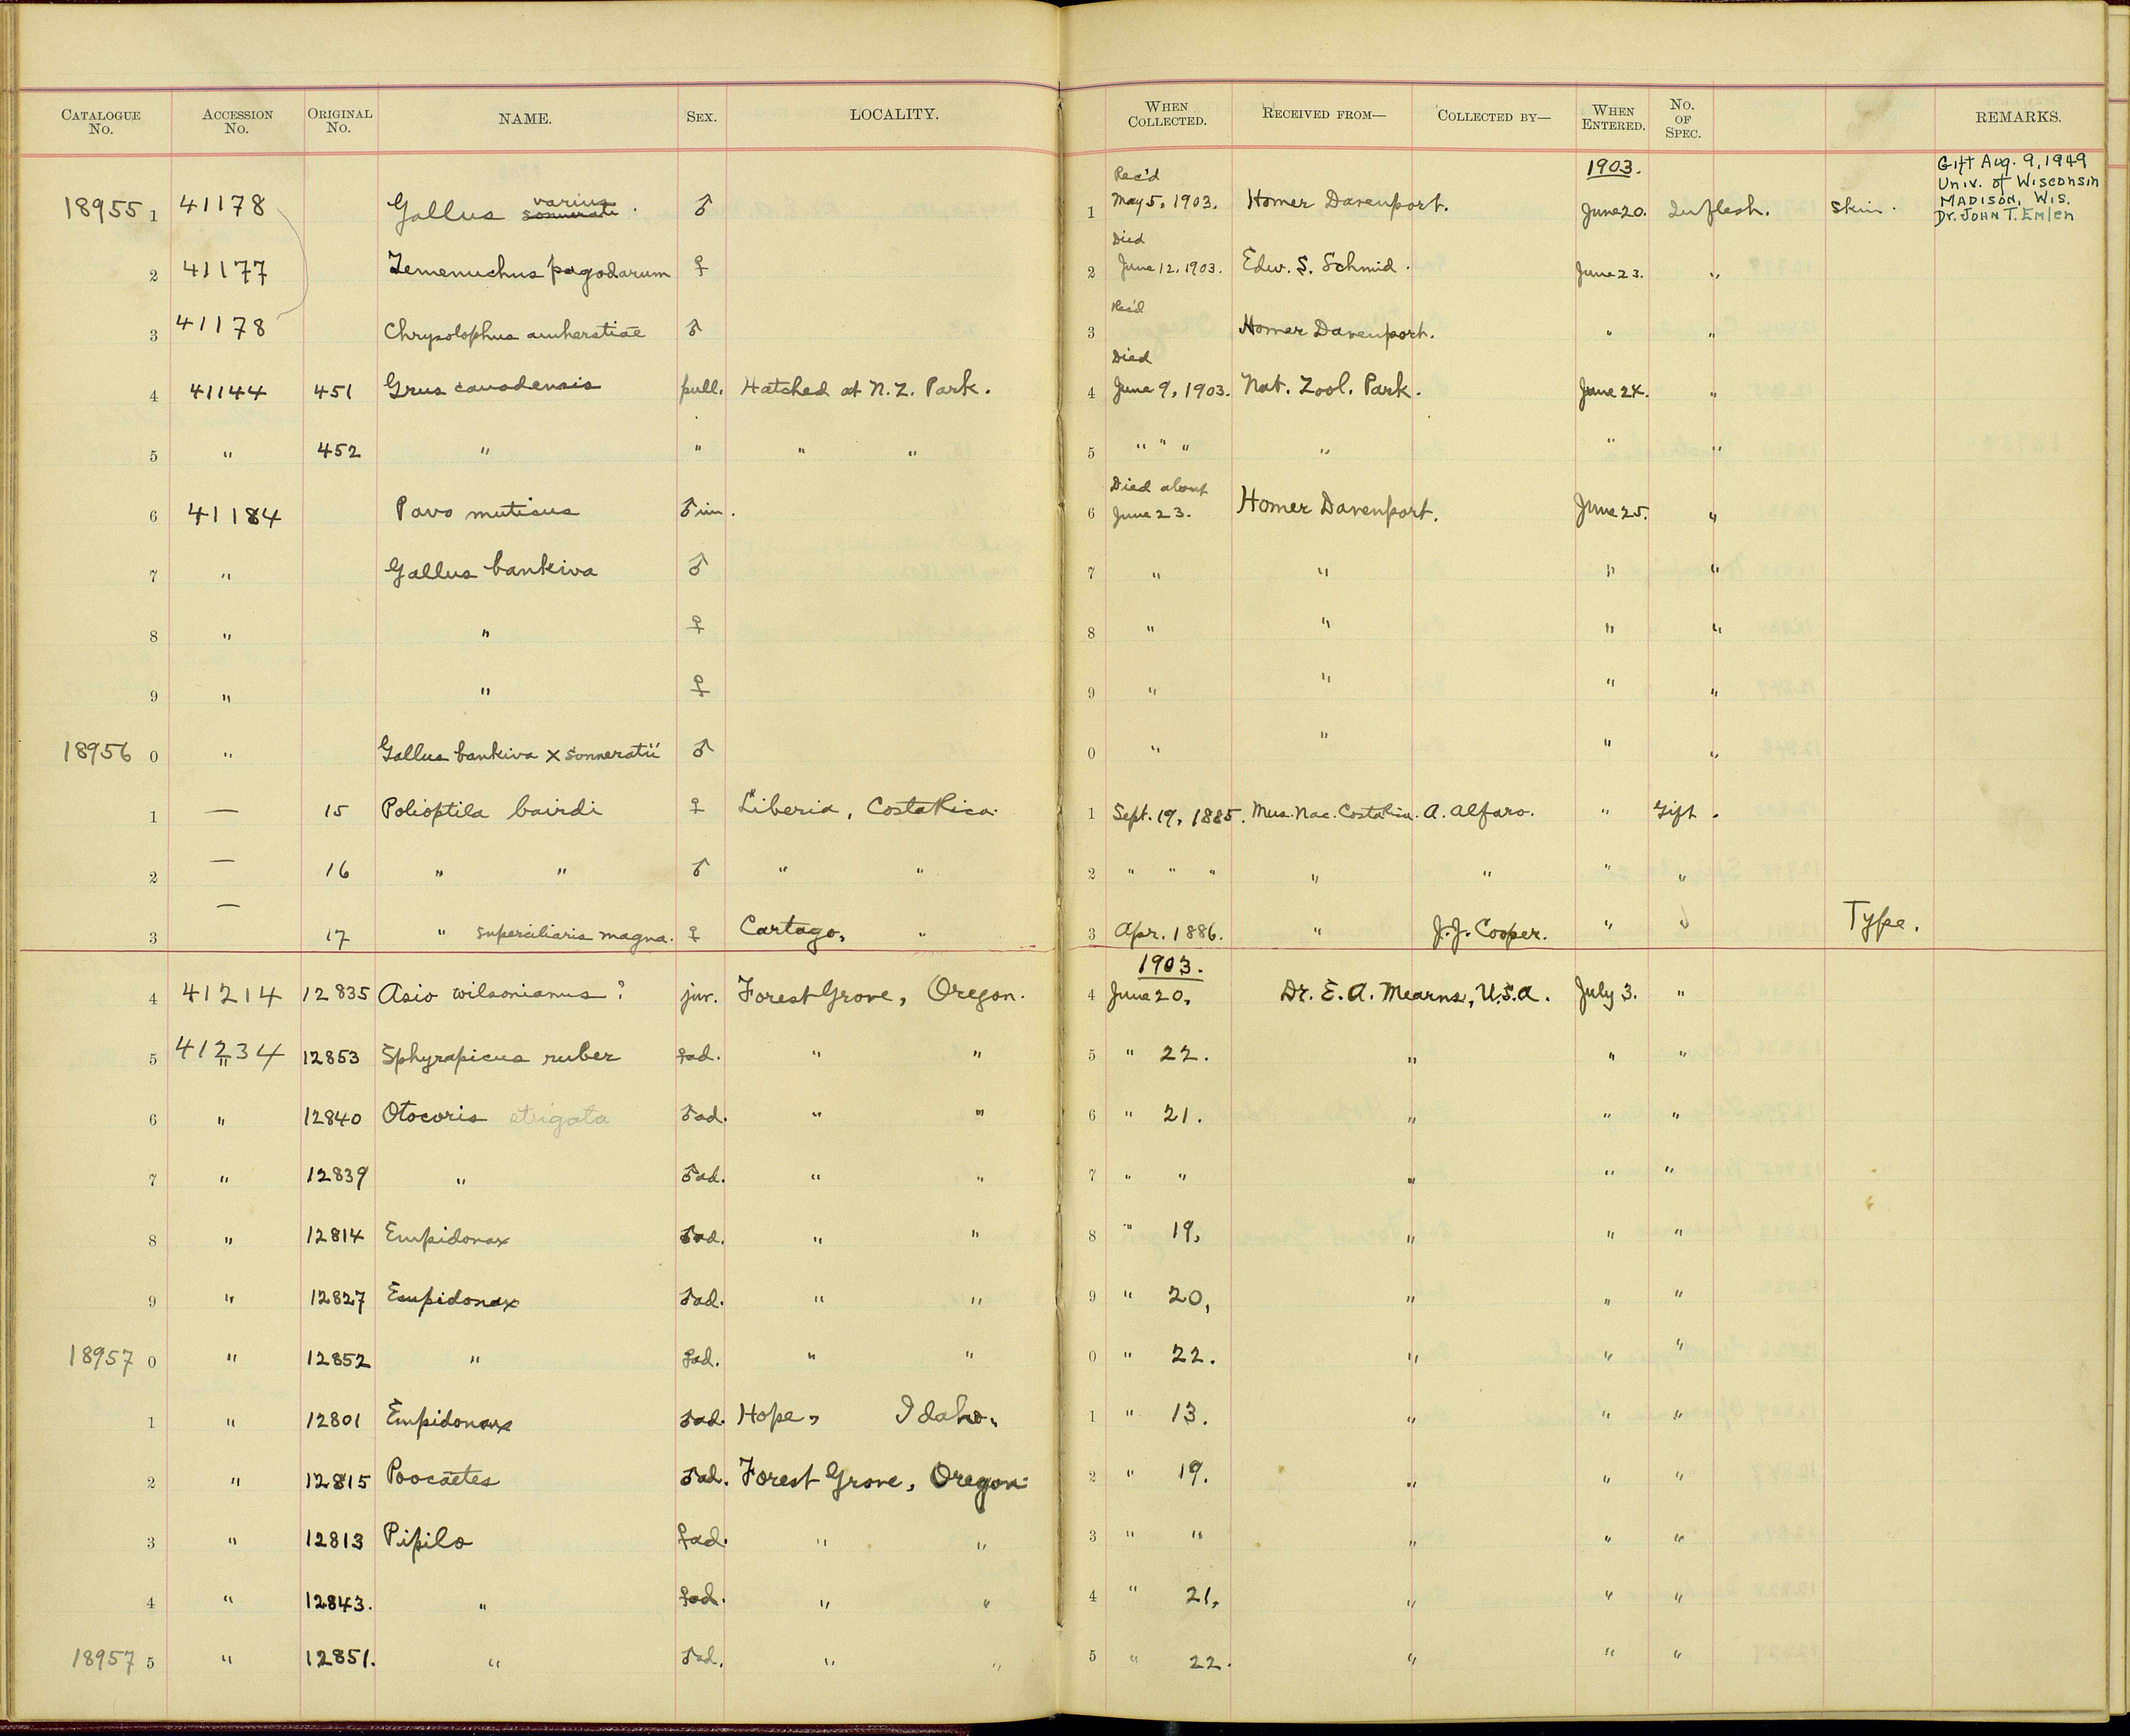 CATALOGUE No. ACCESSION No. ORIGINAL No. NAME. SEX. LOCALITY. WHEN COLLECTED. RECEIVED FROM— COLLECTED BY— WHEN ENTERED. No. OF SPEC. REMARKS.
Rec'd 1903. Gift Aug. 9, 1949
Univ. of Wisconsin
MADISON, WIS.
Dr. JOHN T. Emlen
18955 1 41178 Gallus sonnerati varius . ♂ 1 May 5, 1903. Homer Davenport. June 20. In flesh. Skin.
Died
2 41177 Temenuchus pagodarum ♀ 2 June 12, 1903. Edw. S. Schmid. June 23. "
Rec'd
3 41178 Chrysolophus amherstiae ♂ 3 Homer Davenport. " "
Died
4 41144 451 Grus canadensis pull. Hatched at N.Z. Park. 4 June 9, 1903. Nat. Zool. Park. June 24. "
5 " 452 " " " " 5 " " " " " "
Died about
6 41184 Pavo muticus ♂ im. 6 June 23. Homer Davenport. June 25. "
7 " Gallus bankiva ♂ 7 " " " "
8 " " ♀ 8 " " " "
9 " " ♀ 9 " " " "
18956 0 " Gallus bankiva x sonneratii ♂ 0 " " " "
1 — 15 Polioptila bairdi ♀ Liberia, Costa Rica. 1 Sept. 19, 1885. Mus. Nac. Costa Rica. A. Alfaro. " Gift.
2 — 16 " " ♂ " " 2 " " " " " " "
3 — 17 " superciliaris magna. ♀ Cartago, " 3 Apr. 1886. " J.J. Cooper. " Type.
1903.
4 41214 12835 Asio wilsonianus ? juv. Forest Grove, Oregon. 4 June 20, Dr. E. A. Mearns, U.S.A. July 3. "
5 41234 " 12853 Sphyrapicus ruber ♀ad. " " 5 " 22. " " "
6 " 12840 Otocoris strigata ♂ad. " " 6 " 21. " " "
7 " 12839 " ♂ad. " " 7 " " " " "
8 " 12814 Empidonax ♂ad. " " 8 " 19, " " "
9 " 12827 Empidonax ♂ad. " " 9 " 20, " " "
18957 0 " 12852 " ♀ad. " " 0 " 22. " " "
1 " 12801 Empidonax ♂ad. Hope, Idaho. 1 " 13. " " "
2 " 12815 Poocaetes ♂ad. Forest Grove, Oregon. 2 " 19. " " "
3 " 12813 Pipilo ♀ad. " " 3 " " " " "
4 " 12843. " ♀ad. " " 4 " 21, " " "
18957 5 " 12851. " ♂ad. " " 5 " 22. " " "